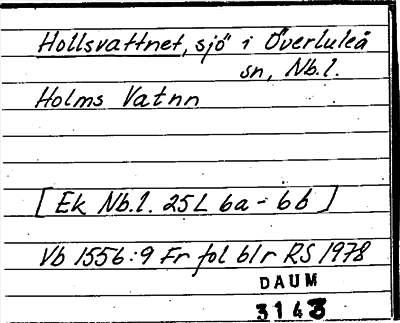 Hollsvattnet, sjö i Överluleå
sn, Nb.l.
Holms Vatnn
[Ek Nb.l. 25L 6a - 6b]
Vb 1556:9 Fr fol blr RS 1978
DAUM
3143